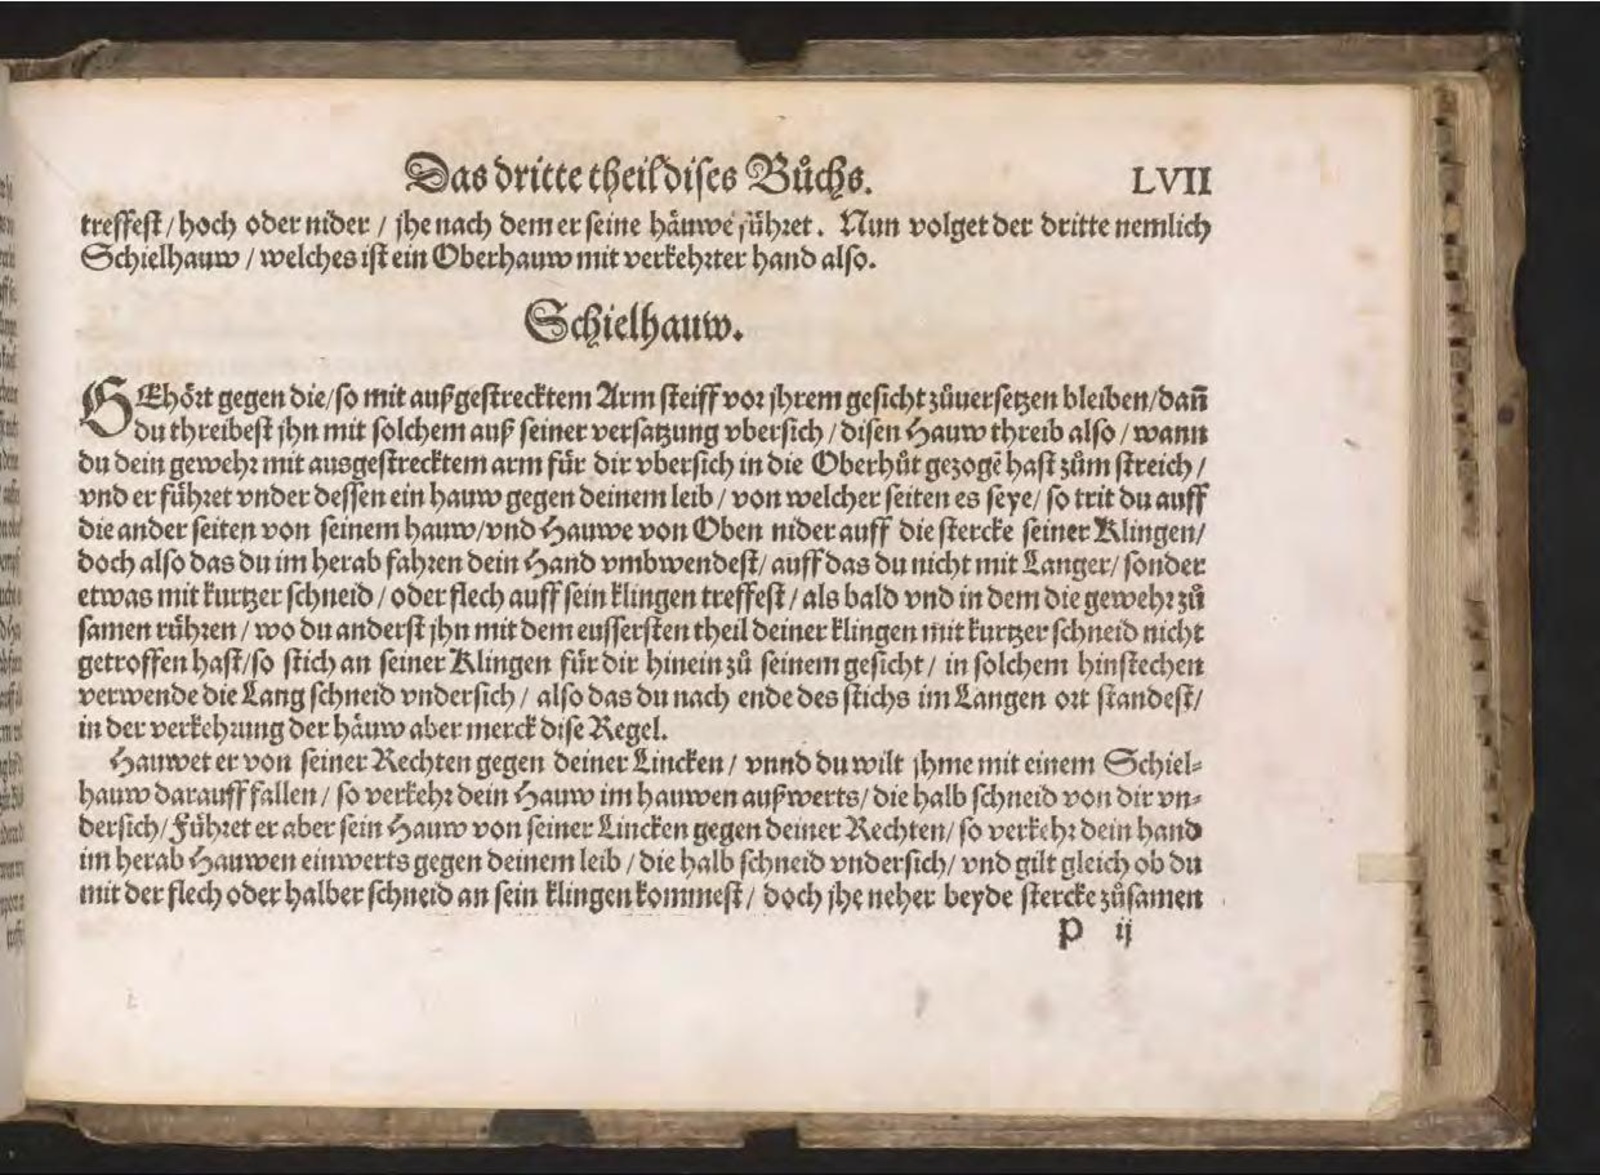 Das dritte theil dises Bůchs. LVII
treffest / hoch oder nider / jhe nach dem er seine häuwe führet. Nun volget der dritte nemlich
Schielhauw / welches ist ein Oberhauw mit verkehrter hand also.
Schielhauw.
GEhört gegen die / so mit außgestrecktem Arm steiff vor jhrem gesicht zůuersetzen bleiben / dañ
du threibest jhn mit solchem auß seiner versatzung vbersich / disen Hauw threib also / wann
du dein gewehr mit ausgestrecktem arm für dir vbersich in die Oberhůt gezogē hast zům streich /
vnd er führet vnder dessen ein hauw gegen deinem leib / von welcher seiten es seye / so trit du auff
die ander seiten von seinem hauw / vnd Hauwe von Oben nider auff die stercke seiner Klingen /
doch also das du im herab fahren dein Hand vmbwendest / auff das du nicht mit Langer / sonder
etwas mit kurtzer schneid / oder flech auff sein klingen treffest / als bald vnd in dem die gewehr zů
samen rühren / wo du anderst jhn mit dem eussersten theil deiner klingen mit kurtzer schneid nicht
getroffen hast / so stich an seiner Klingen für dir hinein zů seinem gesicht / in solchem hinstechen
verwende die Lang schneid vndersich / also das du nach ende des stichs im Langen ort standest /
in der verkehrung der häuw aber merck dise Regel.
Hauwet er von seiner Rechten gegen deiner Lincken / vnnd du wilt jhme mit einem Schiel⸗
hauw darauff fallen / so verkehr dein Hauw im hauwen außwerts / die halb schneid von dir vn⸗
dersich / Führet er aber sein Hauw von seiner Lincken gegen deiner Rechten / so verkehr dein hand
im herab Hauwen einwerts gegen deinem leib / die halb schneid vndersich / vnd gilt gleich ob du
mit der flech oder halber schneid an sein klingen kommest / doch jhe neher beyde stercke zůsamen
P ij